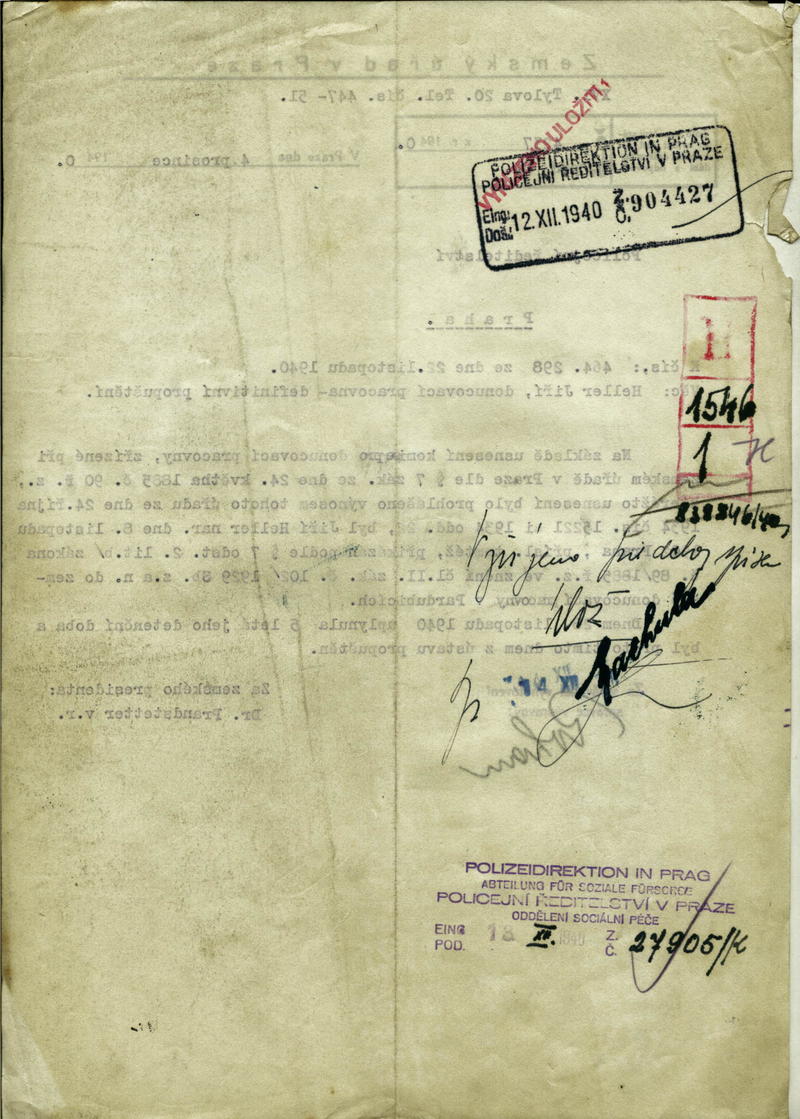 Zemský úřad v Praze
Tylova 20. Tel. čís. 447-51.
ULOŽITI!
V Praze dne 4 prosince 194 0.
POLIZEIDIREKTION IN PRAG
POLICEJNÍ ŘEDITELSTVÍ V PRAZE
Eing: Doš: 12.XII.1940 Z. Č. 904427
Policejní ředitelství
Praha.
K čís.: 464. 298 ze dne 22.listopadu 1940.
Věc: Heller Jiří, donucovací pracovna- definitivní propuštění.
1546
1
Na základě usnesení komise pro donucovací pracovny, zřízené při
zemském úřadě v Praze dle § 7 zák. ze dne 24. května 1885 č. 90 ř. z.,
kteréžto usnesení bylo prohlášeno výnosem tohoto úřadu ze dne 24.října
838846/40
odd. 28, byl Jiří Heller nar. dne 8. listopadu
přikázán podle § 7 odst. 2. lit.b/ zákona
89/1885 ř.z. ve znění čl.II. zák. č. 102/ 1929 Sb. z.a n. do zem-
donucovací pracovny Pardubicích.
Dnem listopadu 1940 uplynula 5 letá jeho detenční doba a
byl tímto dnem z ústavu propuštěn.
Za zemského presidenta:
Dr. Frandstetter v.r.
POLIZEIDIREKTION IN PRAG
ABTEILUNG FÜR SOZIALE FÜRSORGE
POLICEJNÍ ŘEDITELSTVÍ V PRAZE
ODDĚLENÍ SOCIÁLNÍ PÉČE
EING POD. 18 XII. 1940 Z. Č. 27905/K